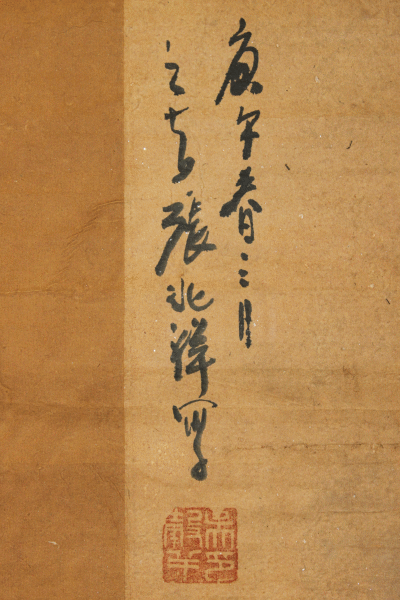 庚午春三月
之吉張兆祥寫